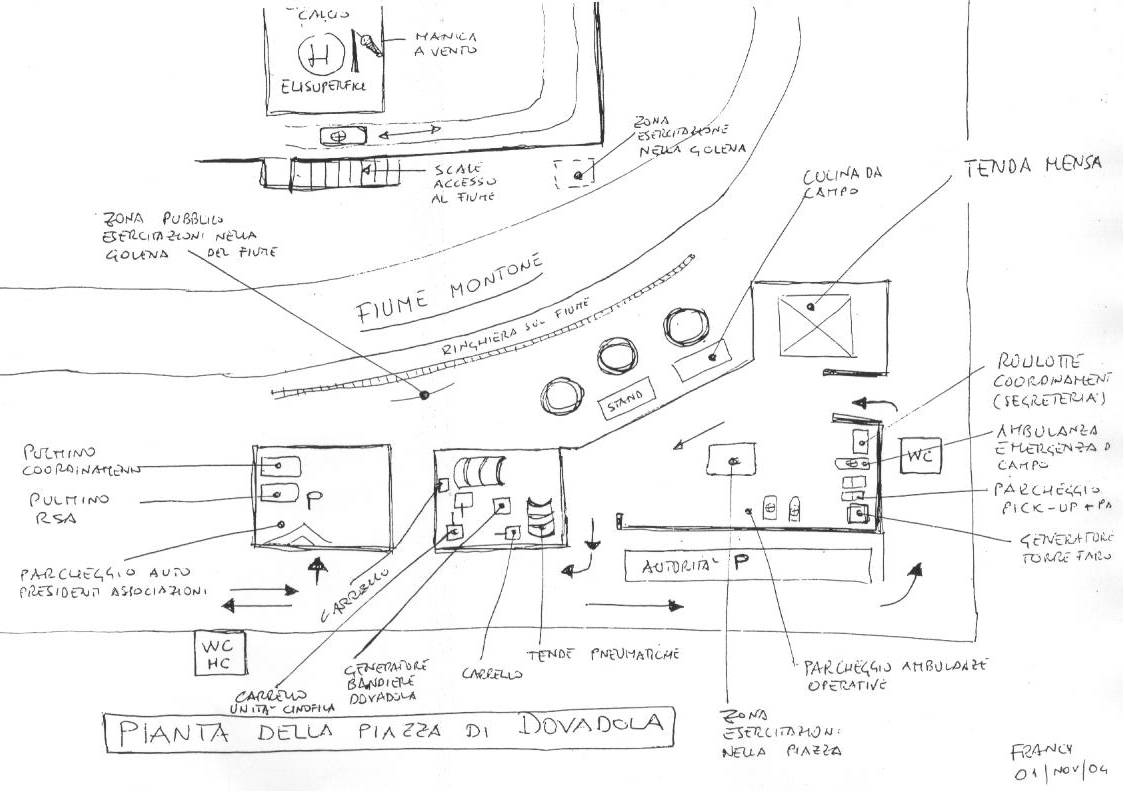 CALCIO
H
ELISUPERFICI
MANICA
A VENTO
ZONA
ESERCITAZIONE
NELLA GOLENA
SCALE
ACCESSO
AL FIUME
CUCINA DA
CAMPO
TENDA MENSA
ZONA PUBBLICO
ESERCITAZIONI NELLA
GOLENA DEL FIUME
FIUME MONTONE
RINGHIERA SUL FIUME
STAND
ROULOTTE
COORDINAMENT
(SEGRETERIA)
AMBULANZA
EMERGENZA D
CAMPO
WC
PARCHEGGIO
PICK-UP + PA
GENERATORE
TORRE FARO
PULMINO
COORDINAMENTO
PULMINO
RSA
P
PARCHEGGIO AUTO
PRESIDENTI ASSOCIAZIONI
AUTORITA' P
CARRELLO
WC
HC
CARRELLO
UNITA' CINOFILA
GENERATORE
BANDIERE
DOVADOLA
CARRELLO
TENDE PNEUMATICHE
PARCHEGGIO AMBULANZE
OPERATIVE
ZONA
ESERCITAZIONI
NELLA PIAZZA
PIANTA DELLA PIAZZA DI DOVADOLA
FRANCY
01/NOV/04